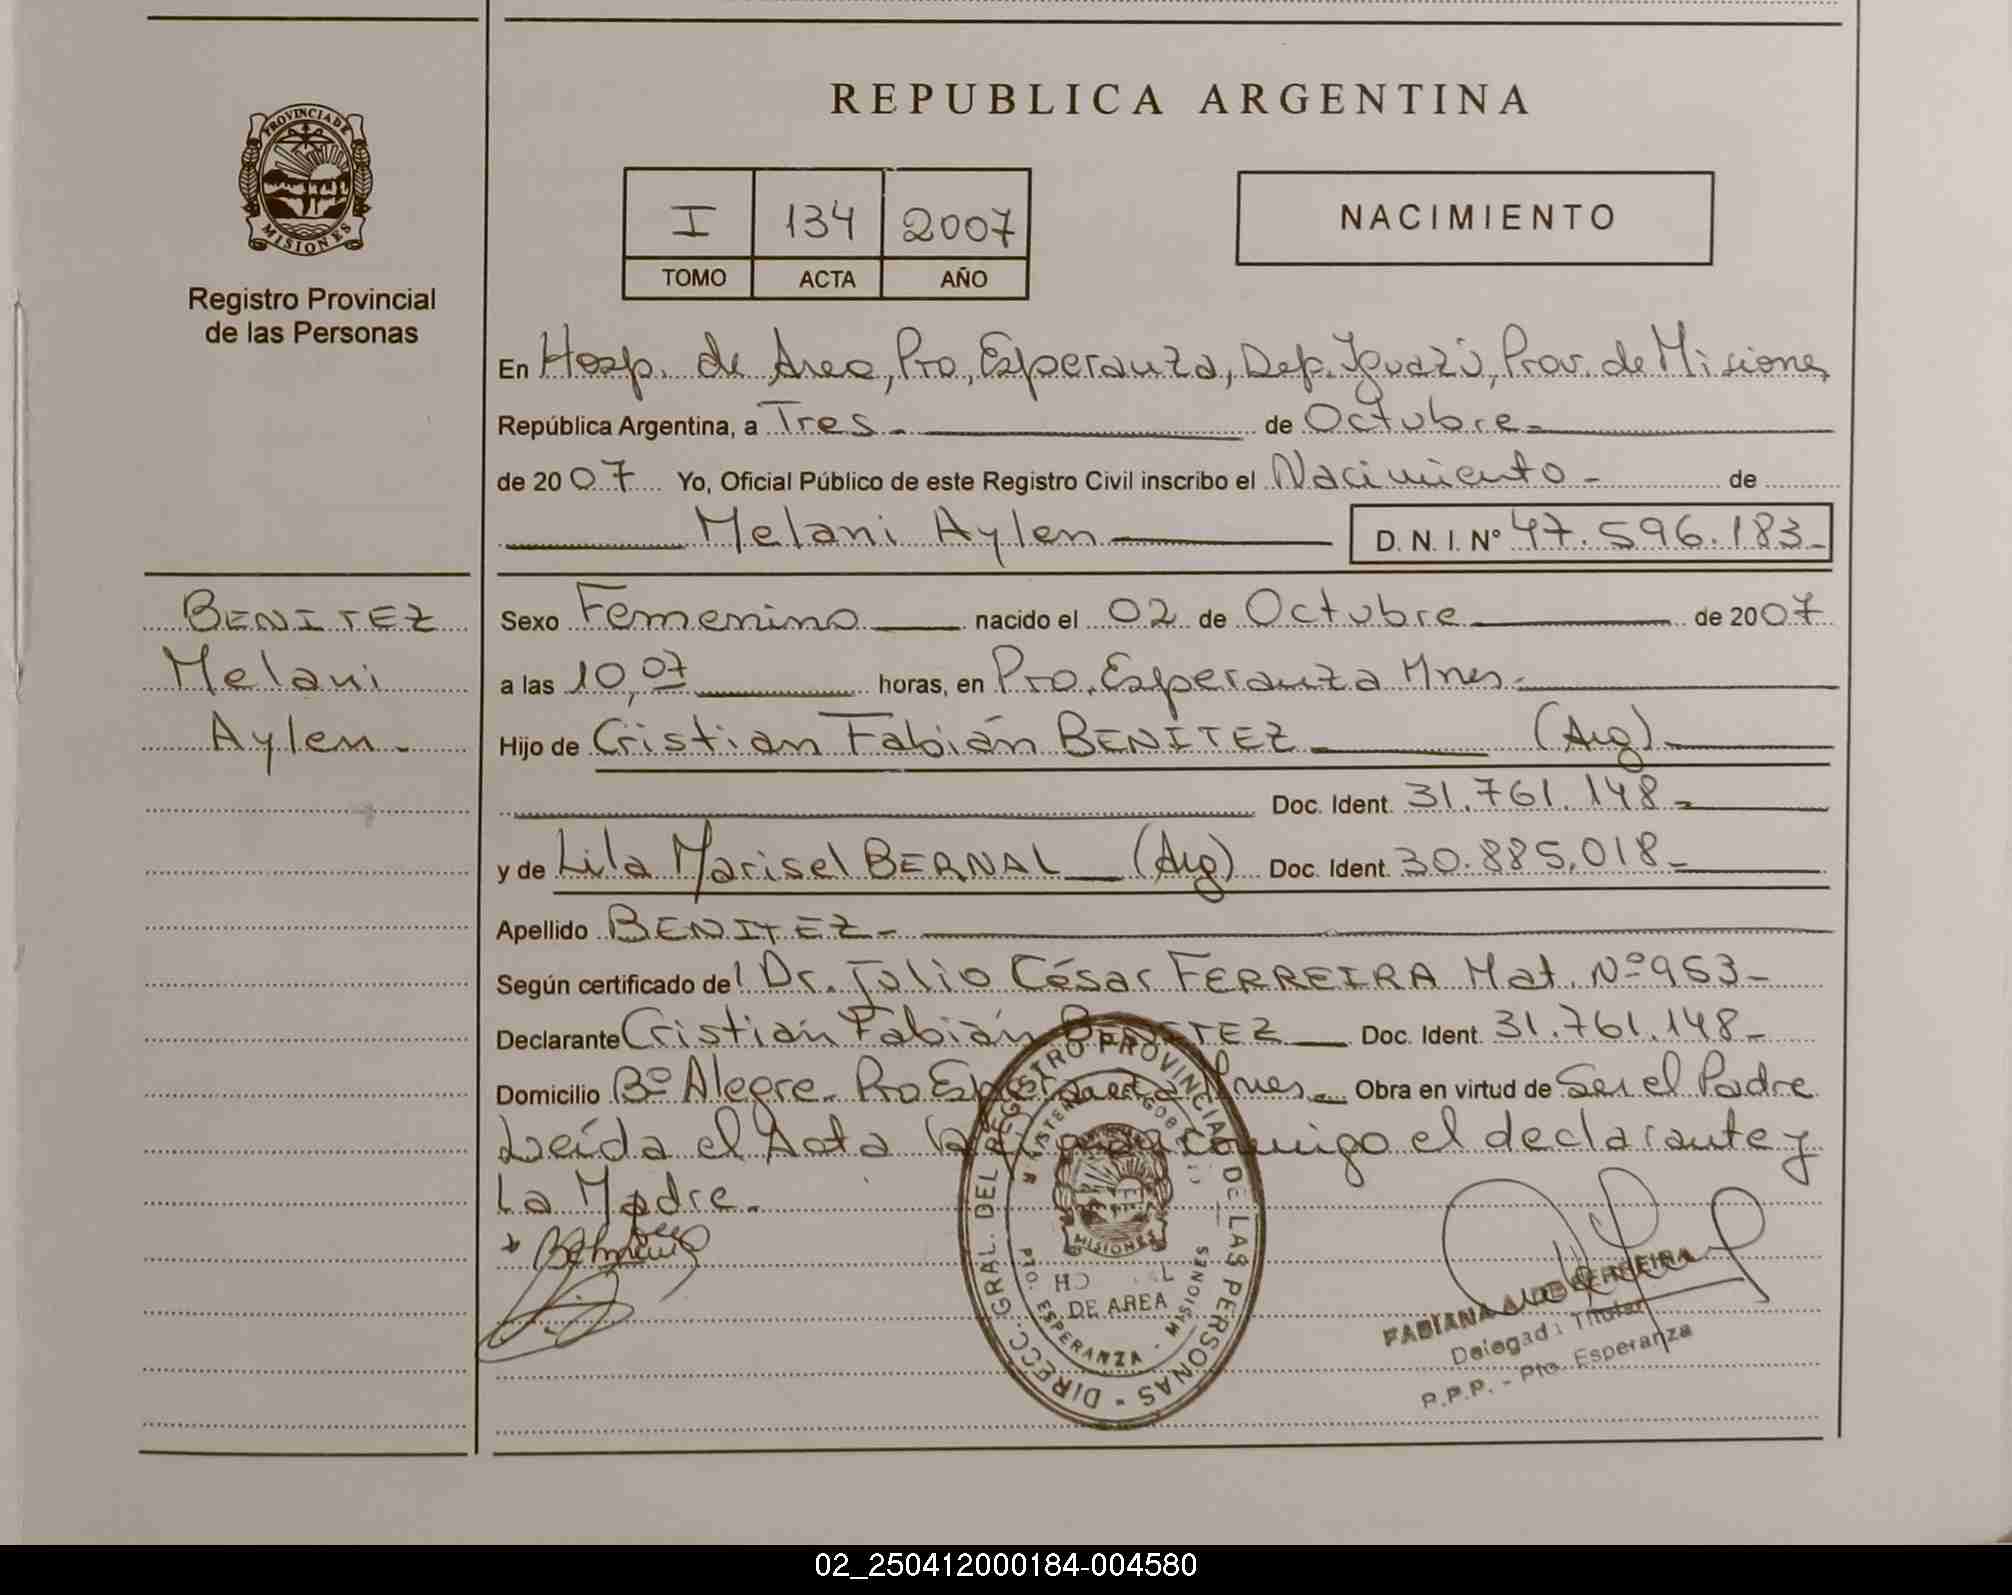 REPUBLICA ARGENTINA
PROVINCIA DE
MISIONES
Registro Provincial
de las Personas
I 134 2007
TOMO ACTA AÑO
NACIMIENTO
En Hosp. de Area, Pto, Esperanza, Dep. Iguazú, Prov. de Misiones
República Argentina, a Tres - de Octubre -
de 2007 Yo, Oficial Público de este Registro Civil inscribo el Nacimiento - de
Melani Aylen D. N. I. Nº 47.596.183-
BENITEZ
Melani
Aylen -
Sexo Femenino nacido el 02 de Octubre de 2007
a las 10,07 horas, en Pto. Esperanza Mnes -
Hijo de Cristian Fabián BENITEZ (Arg)
Doc. Ident. 31.761.148 -
y de Lila Marisel BERNAL (Arg) Doc. Ident. 30.885.018 -
Apellido BENITEZ -
Según certificado del Dr. Julio César FERREIRA Mat. Nº 953 -
Declarante Cristian Fabián BENITEZ Doc. Ident. 31.761.148 -
Domicilio Bº Alegre - Pto Esperanza Mnes - Obra en virtud de Ser el Padre
Leída el Acta conmigo el declarante y
La Madre.
DIRECC. GRAL. DEL REGISTRO PROVINCIAL DE LAS PERSONAS -
MISIONES
DE AREA
PTO. ESPERANZA - MISIONES
FABIANA FERREIRA
Delegada Titular
R.P.P. - Pto. Esperanza
02_250412000184-004580